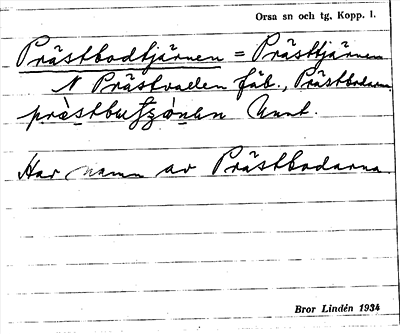 Orsa sn och tg, Kopp. l.
Prästbodtjärnen = Prästtjärnen
N Prästvallen fäb., Prästbodarna
Uunt.
Har namn av Prästbodarna.
Bror Lindén 1934